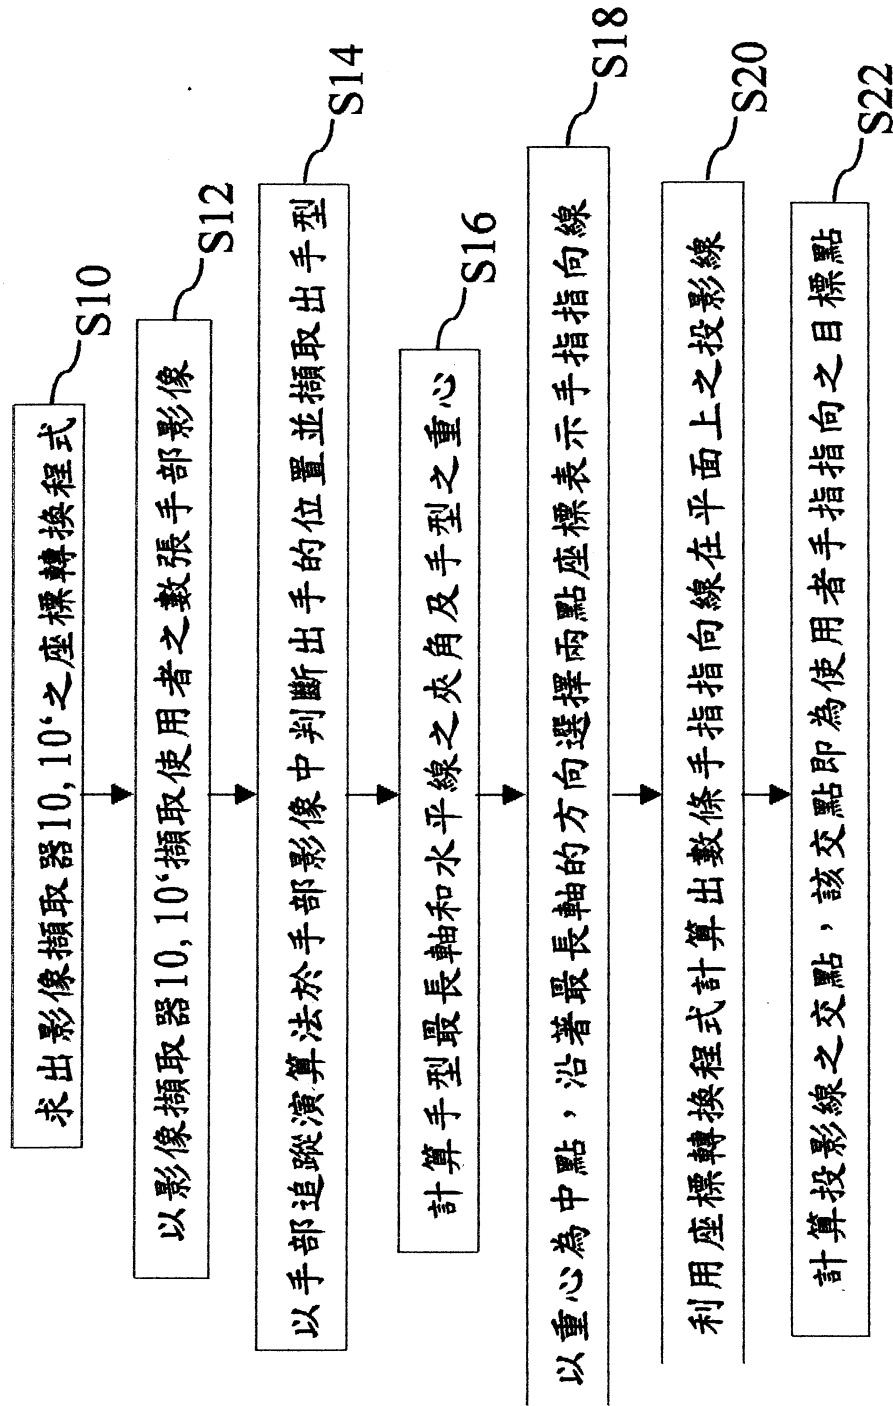 S10
求出影像擷取器10,10‘之座標轉換程式
S12
以影像擷取器10,10‘擷取使用者之數張手部影像
S14
以手部追蹤演算法於手部影像中判斷出手的位置並擷取出手型
S16
計算手型最長軸和水平線之夾角及手型之重心
S18
以重心為中點，沿著最長軸的方向選擇兩點座標表示手指指向線
S20
利用座標轉換程式計算出數條手指指向線在平面上之投影線
S22
計算投影線之交點，該交點即為使用者手指指向之目標點